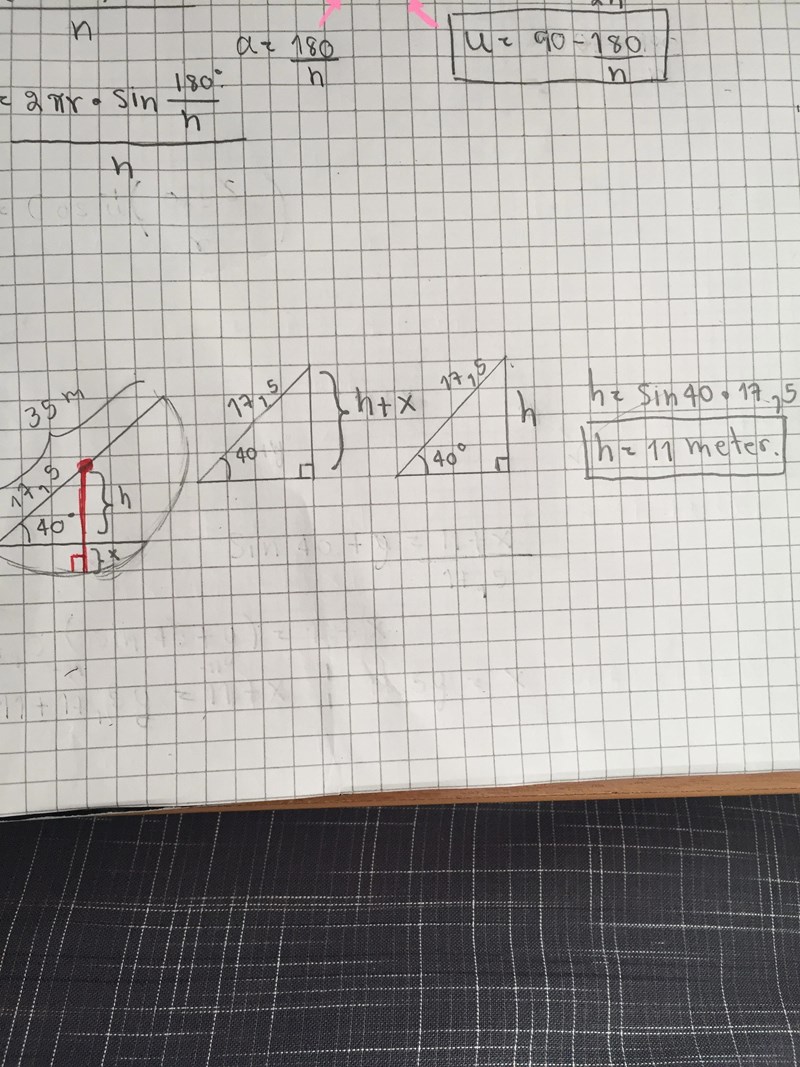 n
a = 180
n
u = 90 - 180
n
= 2πr · sin 180°
n
n
35 m
17,5
40°
h
x
17,5
40
h + x
17,5
40°
h
h = sin 40 · 17,5
h = 11 meter.